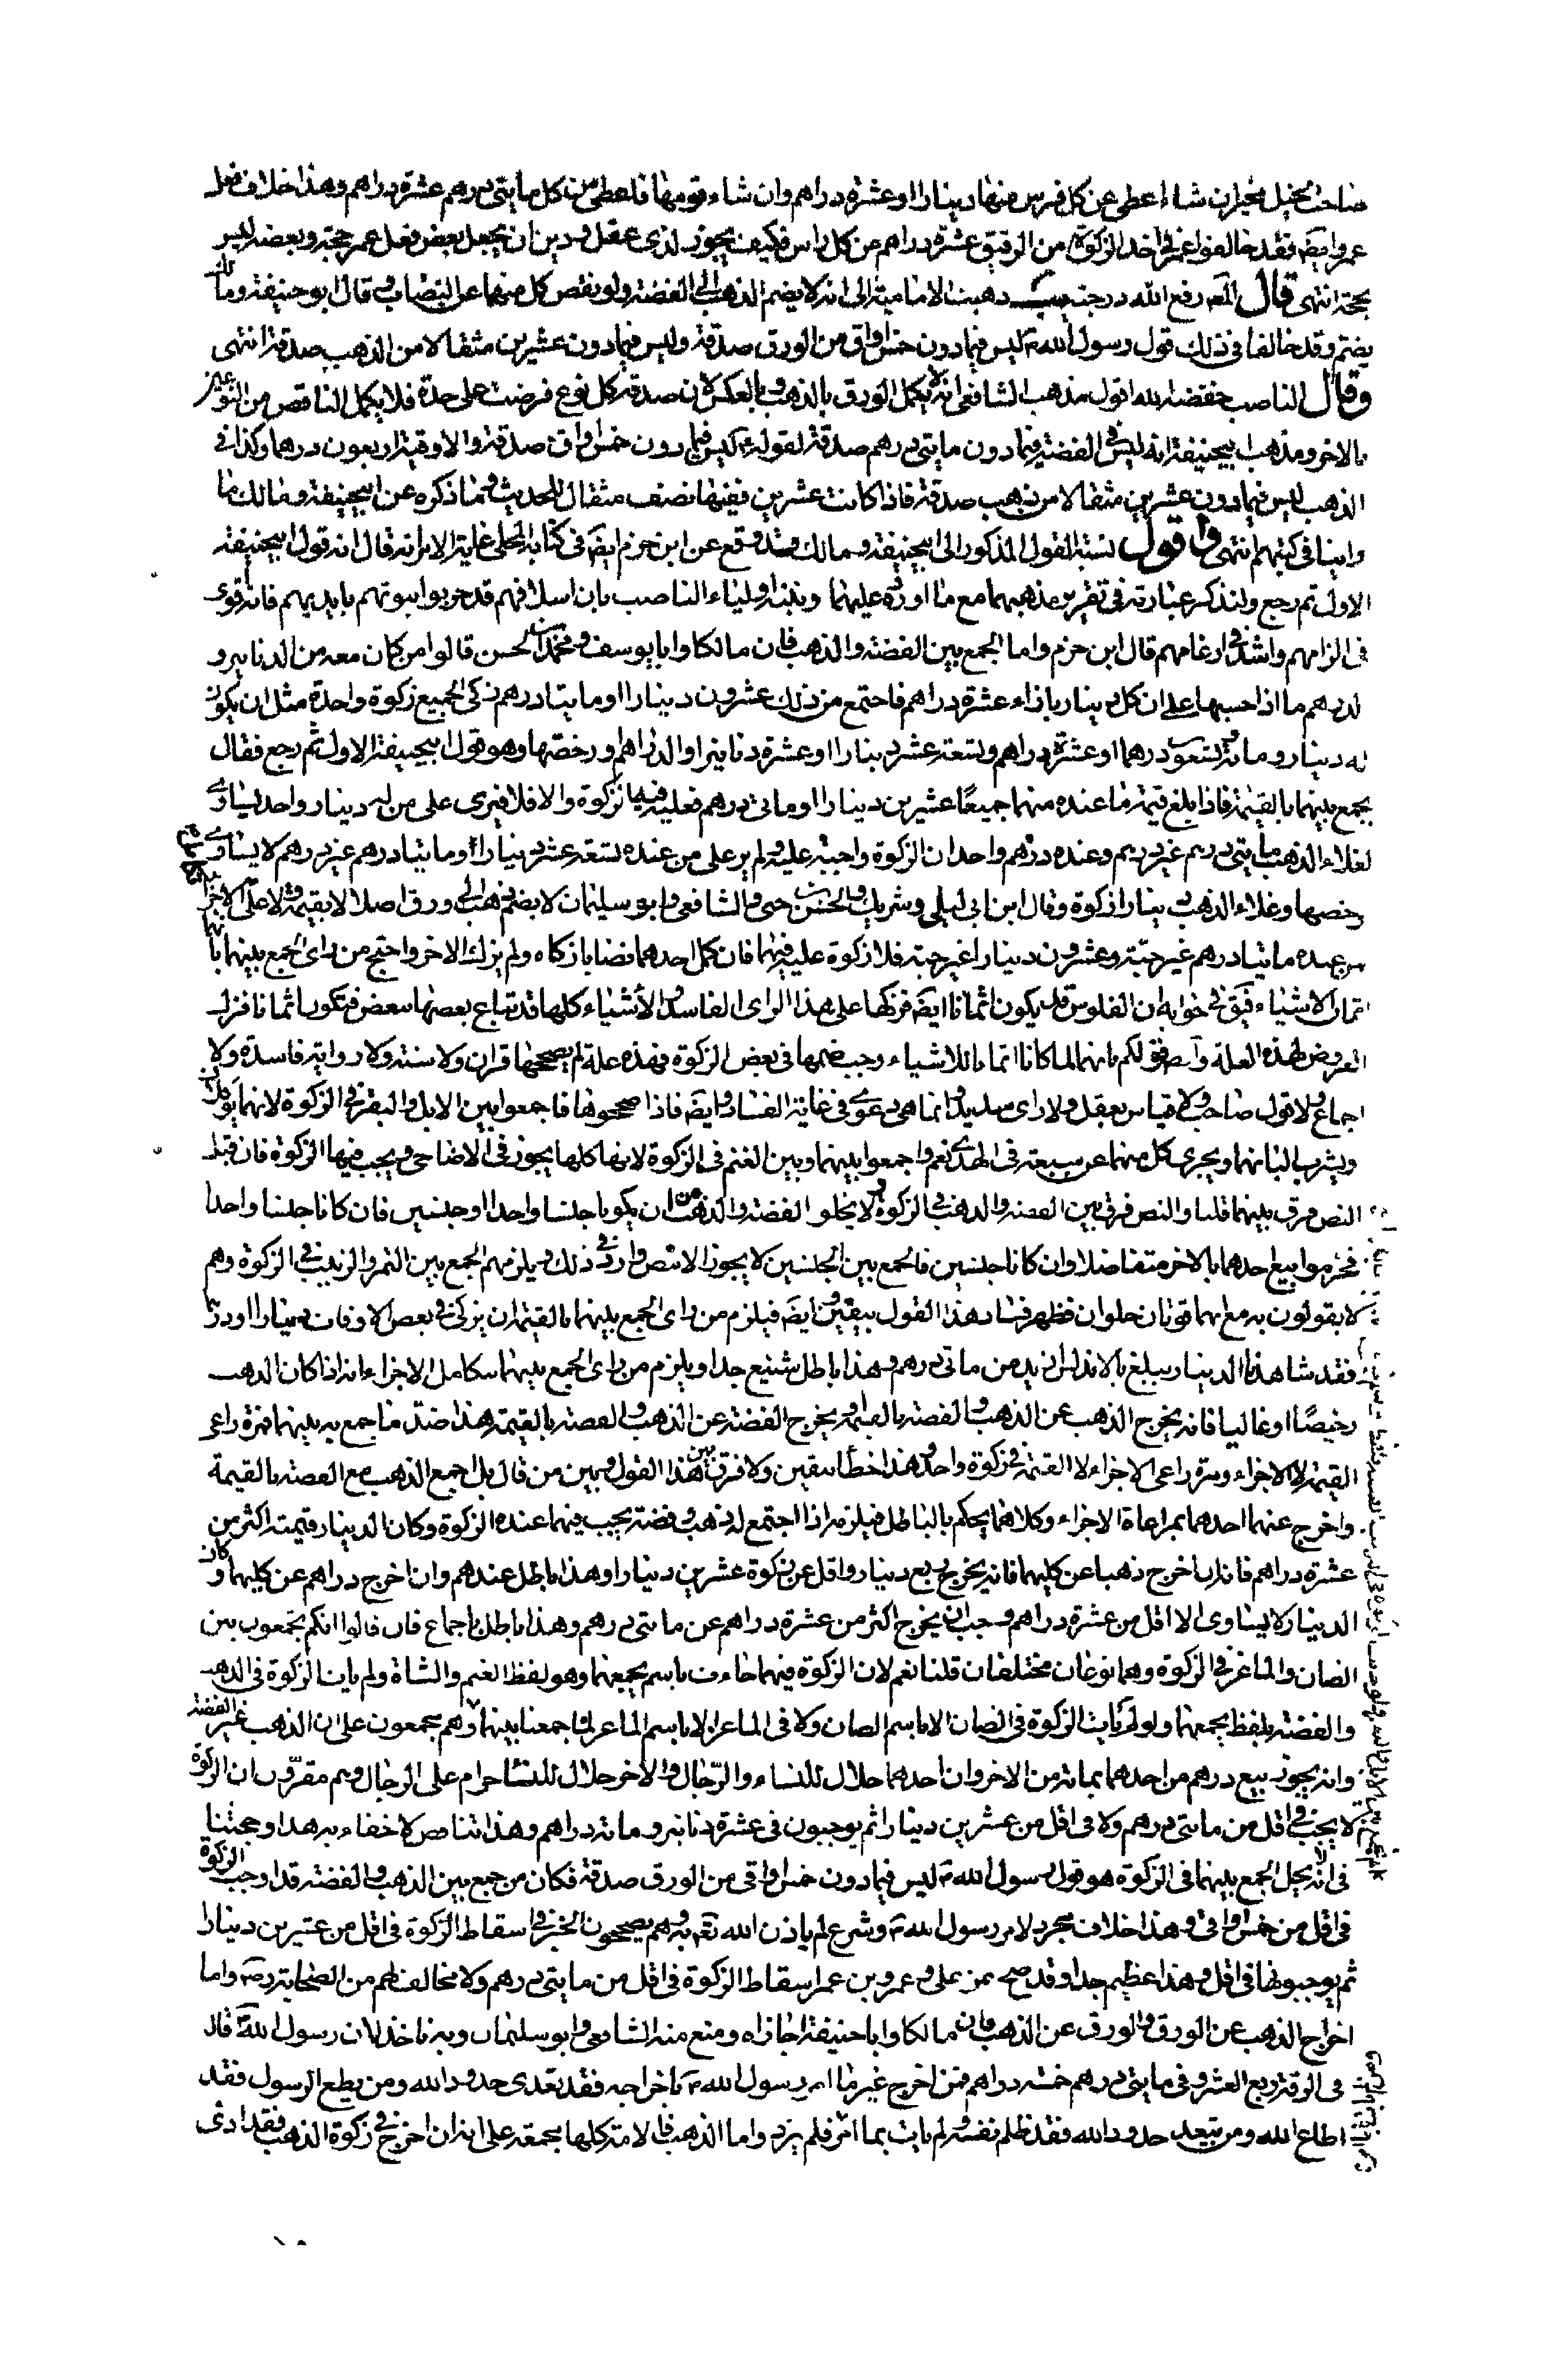 صاحب الخيل مخير ان شاء اعطى عن كل فرس منها دينارا او عشرة دراهم وان شاء قومها فاعطى من كل مايتى درهم عشرة دراهم وهذا خلاف فعل
عمر وايضا فقد خالفوا عمر فى اخذ الزكوة من الرقيق عشرة دراهم من كل راس فكيف يجوز لذى عقل ودين ان يجعل بعض فعل عمر حجة وبعضه ليس
بحجة انتهى قال المص رفع الله درجته ذهبت الامامية الى انه لا يضم الذهب الى الفضة ولو نقص كل منهما عن النصاب وقال ابو حنيفة ومالك
يضم وقد خالفا فى ذلك قول رسول الله ص ليس فيما دون خمس اواق من الورق صدقة وليس فيما دون عشرين مثقالا من الذهب صدقة انتهى
وقال الناصب خفضه الله اقول مذهب الشافعى انه لا يكمل الورق بالذهب وبالعكس لان صدقة كل نوع فرضت على حدة فلا يكمل الناقص من النوعين
بالاخر ومذهب ابيحنيفة انه ليس فى الفضة فيما دون مايتى درهم صدقة لقوله ع ليس فيما دون خمس اواق صدقة والاوقية اربعون درهما وكذا فى
الذهب ليس فيما دون عشرين مثقالا من ذهب صدقة فاذا كانت عشرين ففيها نصف مثقال للحديث وما ذكره عن ابيحنيفة ومالك ما
راينا فى كتبهم انتهى واقول نسبة القول المذكور الى ابيحنيفة ومالك قد وقع عن ابن حزم ايضا فى كتابه المحلى غاية الامر انه قال انه قول ابيحنيفة
الاول ثم رجع ولنذكر عبارته فى تقرير مذهبهما مع ما اورده عليهما وينبه اولياء الناصب بان اسلافهم قد خربوا بيوتهم بايديهم فانه اقوى
فى الزامهم واشد فى ارغامهم قال ابن حزم واما الجمع بين الفضة والذهب فان مالكا وابا يوسف ومحمد بن الحسن قالوا من كان معه من الدنانير و
الدراهم ما اذا حسبها على ان كل دينار بازاء عشرة دراهم فاجتمع من ذلك عشرون دينارا او مايتا درهم زكى الجميع زكوة واحدة مثل ان يكون
له دينار ومائة وتسعون درهما او عشرة دراهم وتسعة عشر دينارا او عشرة دنانير او الدراهم ورخصها وهو قول ابيحنيفة الاول ثم رجع فقال
يجمع بينهما بالقيمة فاذا بلغ قيمة ما عنده منهما جميعا عشرين دينارا او مائتى درهم فعليه فيها زكوة والا فلا فيرى على من له دينار واحد يساوى
لغلاء الذهب مايتى درهم غير درهم وعنده درهم واحد ان الزكوة واجبة عليه ولم ير على من عنده تسعة عشر دينارا او مايتا درهم غير درهم لا يساوى
رخصها وغلاء الذهب دينارا زكوة وقال ابن ابى ليلى وشريك والحسن بن حى والشافعى وابو سليمان لا يضم ذهب الى ورق اصلا لا بقيمة ولا على الاجزاء
من عنده مايتا درهم غير حبة وعشرون دينارا غير حبة فلا زكوة عليه فيهما فان كمل احدهما نصابا زكاه ولم يزك الاخر واحتج من راى الجمع بينهما بانهما
اثمان الاشياء فيق فى جوابه ان الفلوس قد يكون اثمانا ايضا فزكها على هذا الراى الفاسد والاشياء كلها قد تباع بعضها ببعض فتكون اثمانا فزك
العروض لهذه العلة وايضا فقولكم بانهما لما كانا اثمانا للاشياء وجب ضمها فى بعض الزكوة فهذه علة لم يصححها قران ولا سنة ولا رواية فاسدة ولا
اجماع ولا قول صاحب ولا قياس يعقل ولا راى سديد وانما هى دعوى فى غاية الفساد وايضا فاذا صححوها فاجمعوا بين الابل والبقر فى الزكوة لانهما يؤكلان
ويشرب البانهما ويجزى كل منهما عن سبعة فى الهدى نعم واجمعوا بينهما وبين الغنم فى الزكوة لانها كلها يجوز فى الاضاحى ويجب فيها الزكوة فان قيل
النص فرق بينهما قلنا والنص فرق بين الفضة والذهب فى الزكوة ولا يخلو الفضة والذهب من ان يكونا جنسا واحدا او جنسين فان كانا جنسا واحدا
فحرموا بيع احدهما بالاخر متفاضلا وان كانا جنسين فالجمع بين الجنسين لا يجوز الا بنص وارد فى ذلك ويلزمهم الجمع بين التمر والزبيب فى الزكوة وهم
لا يقولون به مع انهما قوتان حلوان فظهر فساد هذا القول بيقين وايضا فيلزم من راى الجمع بينهما بالقيمة ان يزكى فى بعض الاوقات دينارا ودرهما
فقد شاهدنا الدينار يبلغ بالاندلس ازيد من مائتى درهم وهذا باطل شنيع جدا ويلزم من راى الجمع بينهما بتكامل الاجزاء انه اذا كان الذهب
رخيصا او غاليا فانه يخرج الذهب عن الذهب والفضة بالقيمة ويخرج الفضة عن الذهب والفضة بالقيمة هذا ضد ما جمع به بينهما فمرة راعى
القيمة لا الاجزاء ومرة راعى الاجزاء لا القيمة فى زكوة واحدة وهذا خطأ بيقين ولا فرق بين هذا القول وبين من قال بل اجمع الذهب مع الفضة بالقيمة
واخرج عنهما احدهما بمراعاة الاجزاء وكلاهما يحكم بالباطل فيلزمه اذا اجتمع له ذهب وفضة يجب فيهما عنده الزكوة وكان الدينار قيمته اكثر من
عشرة دراهم فانه ان اخرج ذهبا عن كليهما فانه يخرج ربع دينار واقل عن زكوة عشرين دينارا وهذا باطل عندهم وان اخرج دراهم عن كليهما وكان
الدينار لا يساوى الا اقل من عشرة دراهم وجب ان يخرج اكثر من عشرة دراهم عن مايتى درهم وهذا باطل باجماع فان قالوا انكم تجمعون بين
الضان والماعز فى الزكوة وهما نوعان مختلفان قلنا نعم لان الزكوة فيهما جاءت باسم يجمعهما وهو لفظ الغنم والشاة ولم يات الزكوة فى الذهب
والفضة بلفظ يجمعهما ولو لم يات الزكوة فى الضان الا باسم الضان ولا فى الماعز الا باسم الماعز لما جمعنا بينهما وهم مجمعون على ان الذهب غير الفضة
وانه يجوز بيع درهم من احدهما بمائة من الاخر وان احدهما حلال للنساء والرجال والاخر حلال للنساء حرام على الرجال وهم مقرون ان الزكوة
لا يجب فى اقل من مايتى درهم ولا فى اقل من عشرين دينارا ثم يوجبون فى عشرة دنانير ومائة دراهم وهذا تناقض لا خفاء به هذا وحجتنا
فى انه لا يحل الجمع بينهما فى الزكوة هو قول رسول الله ص ليس فيما دون خمس اواقى من الورق صدقة فكان من جمع بين الذهب والفضة قد اوجب الزكوة
فى اقل من خمس اواق وهذا خلاف مجرد لامر رسول الله ص وشرع لم ياذن الله تع به وهم يصححون الخبر فى اسقاط الزكوة فى اقل من عشرين دينارا
ثم يوجبونها فى اقل وهذا عظيم جدا وقد صح عن على وعمر وبن عمر اسقاط الزكوة فى اقل من مايتى درهم ولا مخالف لهم من الصحابة رض واما
اخراج الذهب عن الورق والورق عن الذهب فان مالكا وابا حنيفة اجازاه ومنع منه الشافعى وابو سليمان وبه ناخذ لان رسول الله ص قال
فى الرقة ربع العشر وفى مايتى درهم خمسة دراهم فمن اخرج غير ما امر رسول الله ص باخراجه فقد تعدى حدود الله ومن يطع الرسول فقد
اطاع الله ومن يتعد حدود الله فقد ظلم نفسه ولم يات بما امر فلم يزد واما الذهب فالامة كلها مجمعة على انه ان اخرج فى زكوة الذهب فقد ادى